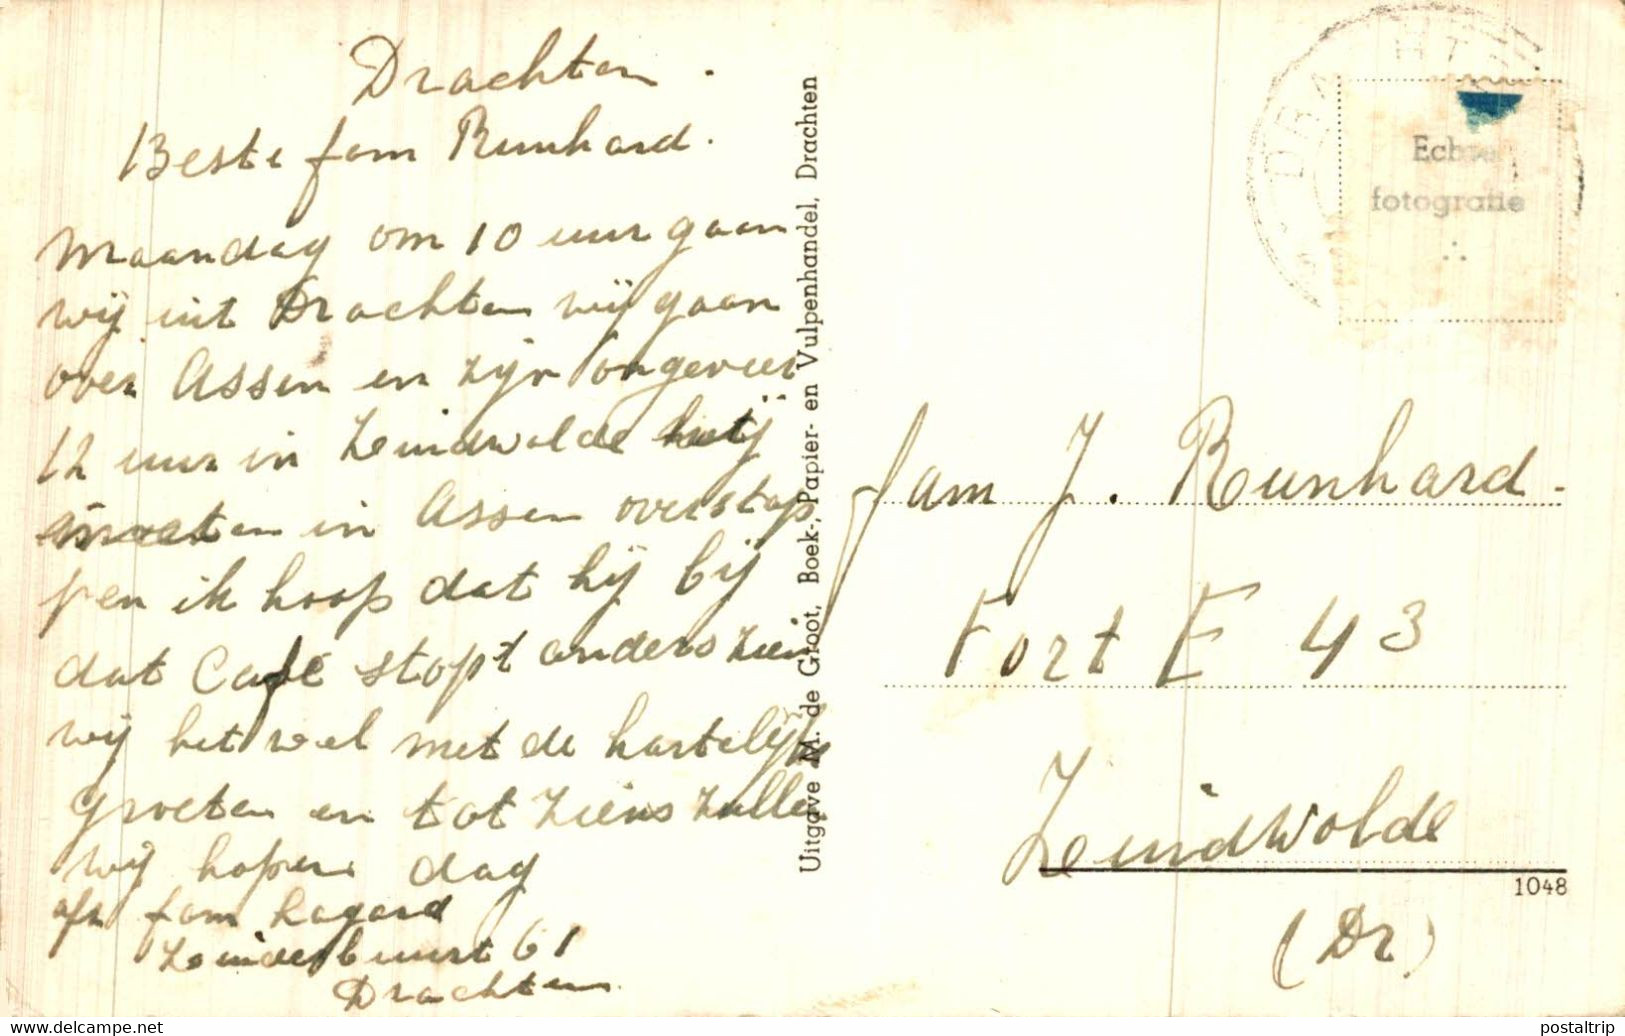 Drachten.
Beste fam Runhard.
maandag om 10 uur gaan
wij uit Drachten wij gaan
over Assen en zijn ongeveer
12 uur in Zuidwolde
moeten in Assen overstap
pen ik hoop dat hij bij
dat Café stopt anders zien
wij het wel met de hartelijk
groeten en tot ziens zulle
wij hopen dag
afz fam Lagard
Zuiderbuurt 61
Drachten
Uitgave M. de Groot, Boek-, Papier- en Vulpenhandel, Drachten
DRACHTEN
Echte
fotografie
fam J. Runhard.
Fort E 43
Zuidwolde
1048
(Dr)
© delcampe.net
postaltrip